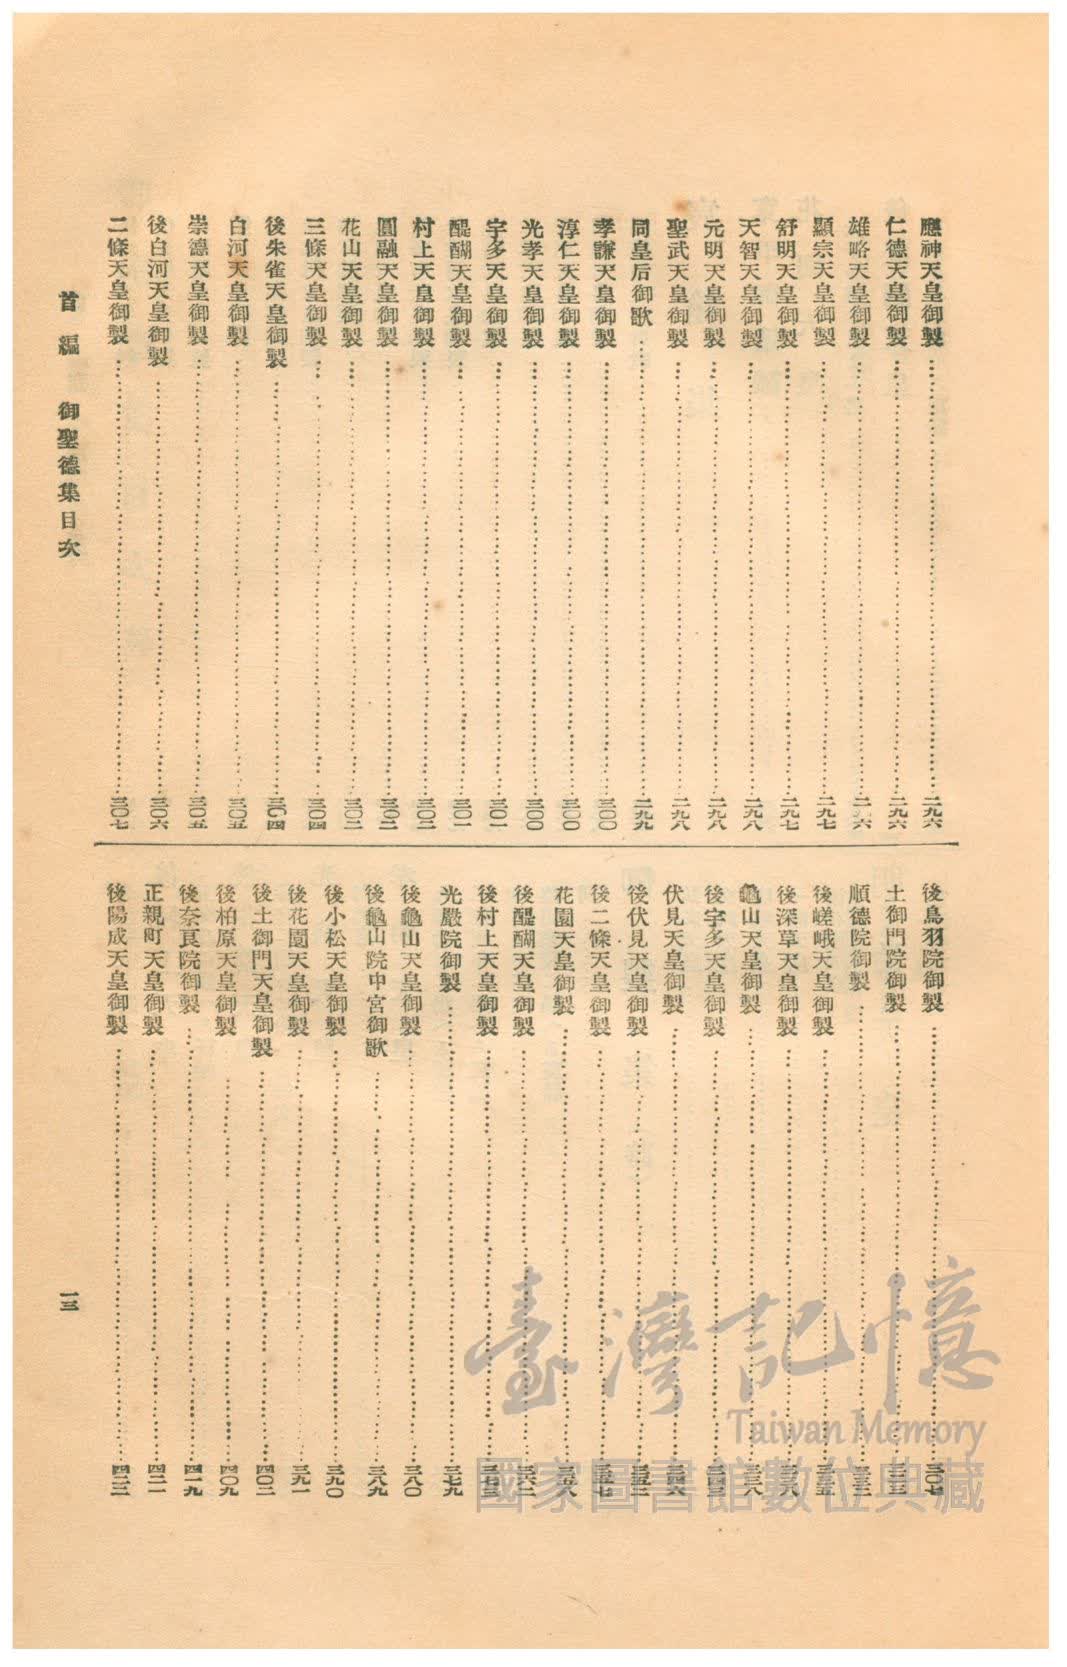 應神天皇御製…二九六
仁德天皇御製…二九六
雄略天皇御製…二九六
顯宗天皇御製…二九七
舒明天皇御製…二九七
天智天皇御製…二九八
元明天皇御製…二九八
聖武天皇御製…二九八
同皇后御歌…二九九
孝謙天皇御製…三〇〇
淳仁天皇御製…三〇〇
光孝天皇御製…三〇〇
宇多天皇御製…三〇一
醍醐天皇御製…三〇一
村上天皇御製…三〇二
圓融天皇御製…三〇二
花山天皇御製…三〇二
三條天皇御製…三〇四
後朱雀天皇御製…三〇四
白河天皇御製…三〇五
崇德天皇御製…三〇五
後白河天皇御製…三〇六
二條天皇御製…三〇七
後鳥羽院御製…三〇七
土御門院御製
順德院御製
後嵯峨天皇御製
後深草天皇御製
龜山天皇御製
後宇多天皇御製
伏見天皇御製
後伏見天皇御製
後二條天皇御製
花園天皇御製
後醍醐天皇御製
後村上天皇御製
光嚴院御製…三七九
後龜山天皇御製…三八〇
後龜山院中宮御歌…三八九
後小松天皇御製…三九〇
後花園天皇御製…三九一
後土御門天皇御製…四〇二
後柏原天皇御製…四〇九
後奈良院御製…四一九
正親町天皇御製…四二一
後陽成天皇御製…四二二
首編 御聖德集目次
一三
臺灣記憶
Taiwan Memory
國家圖書館數位典藏